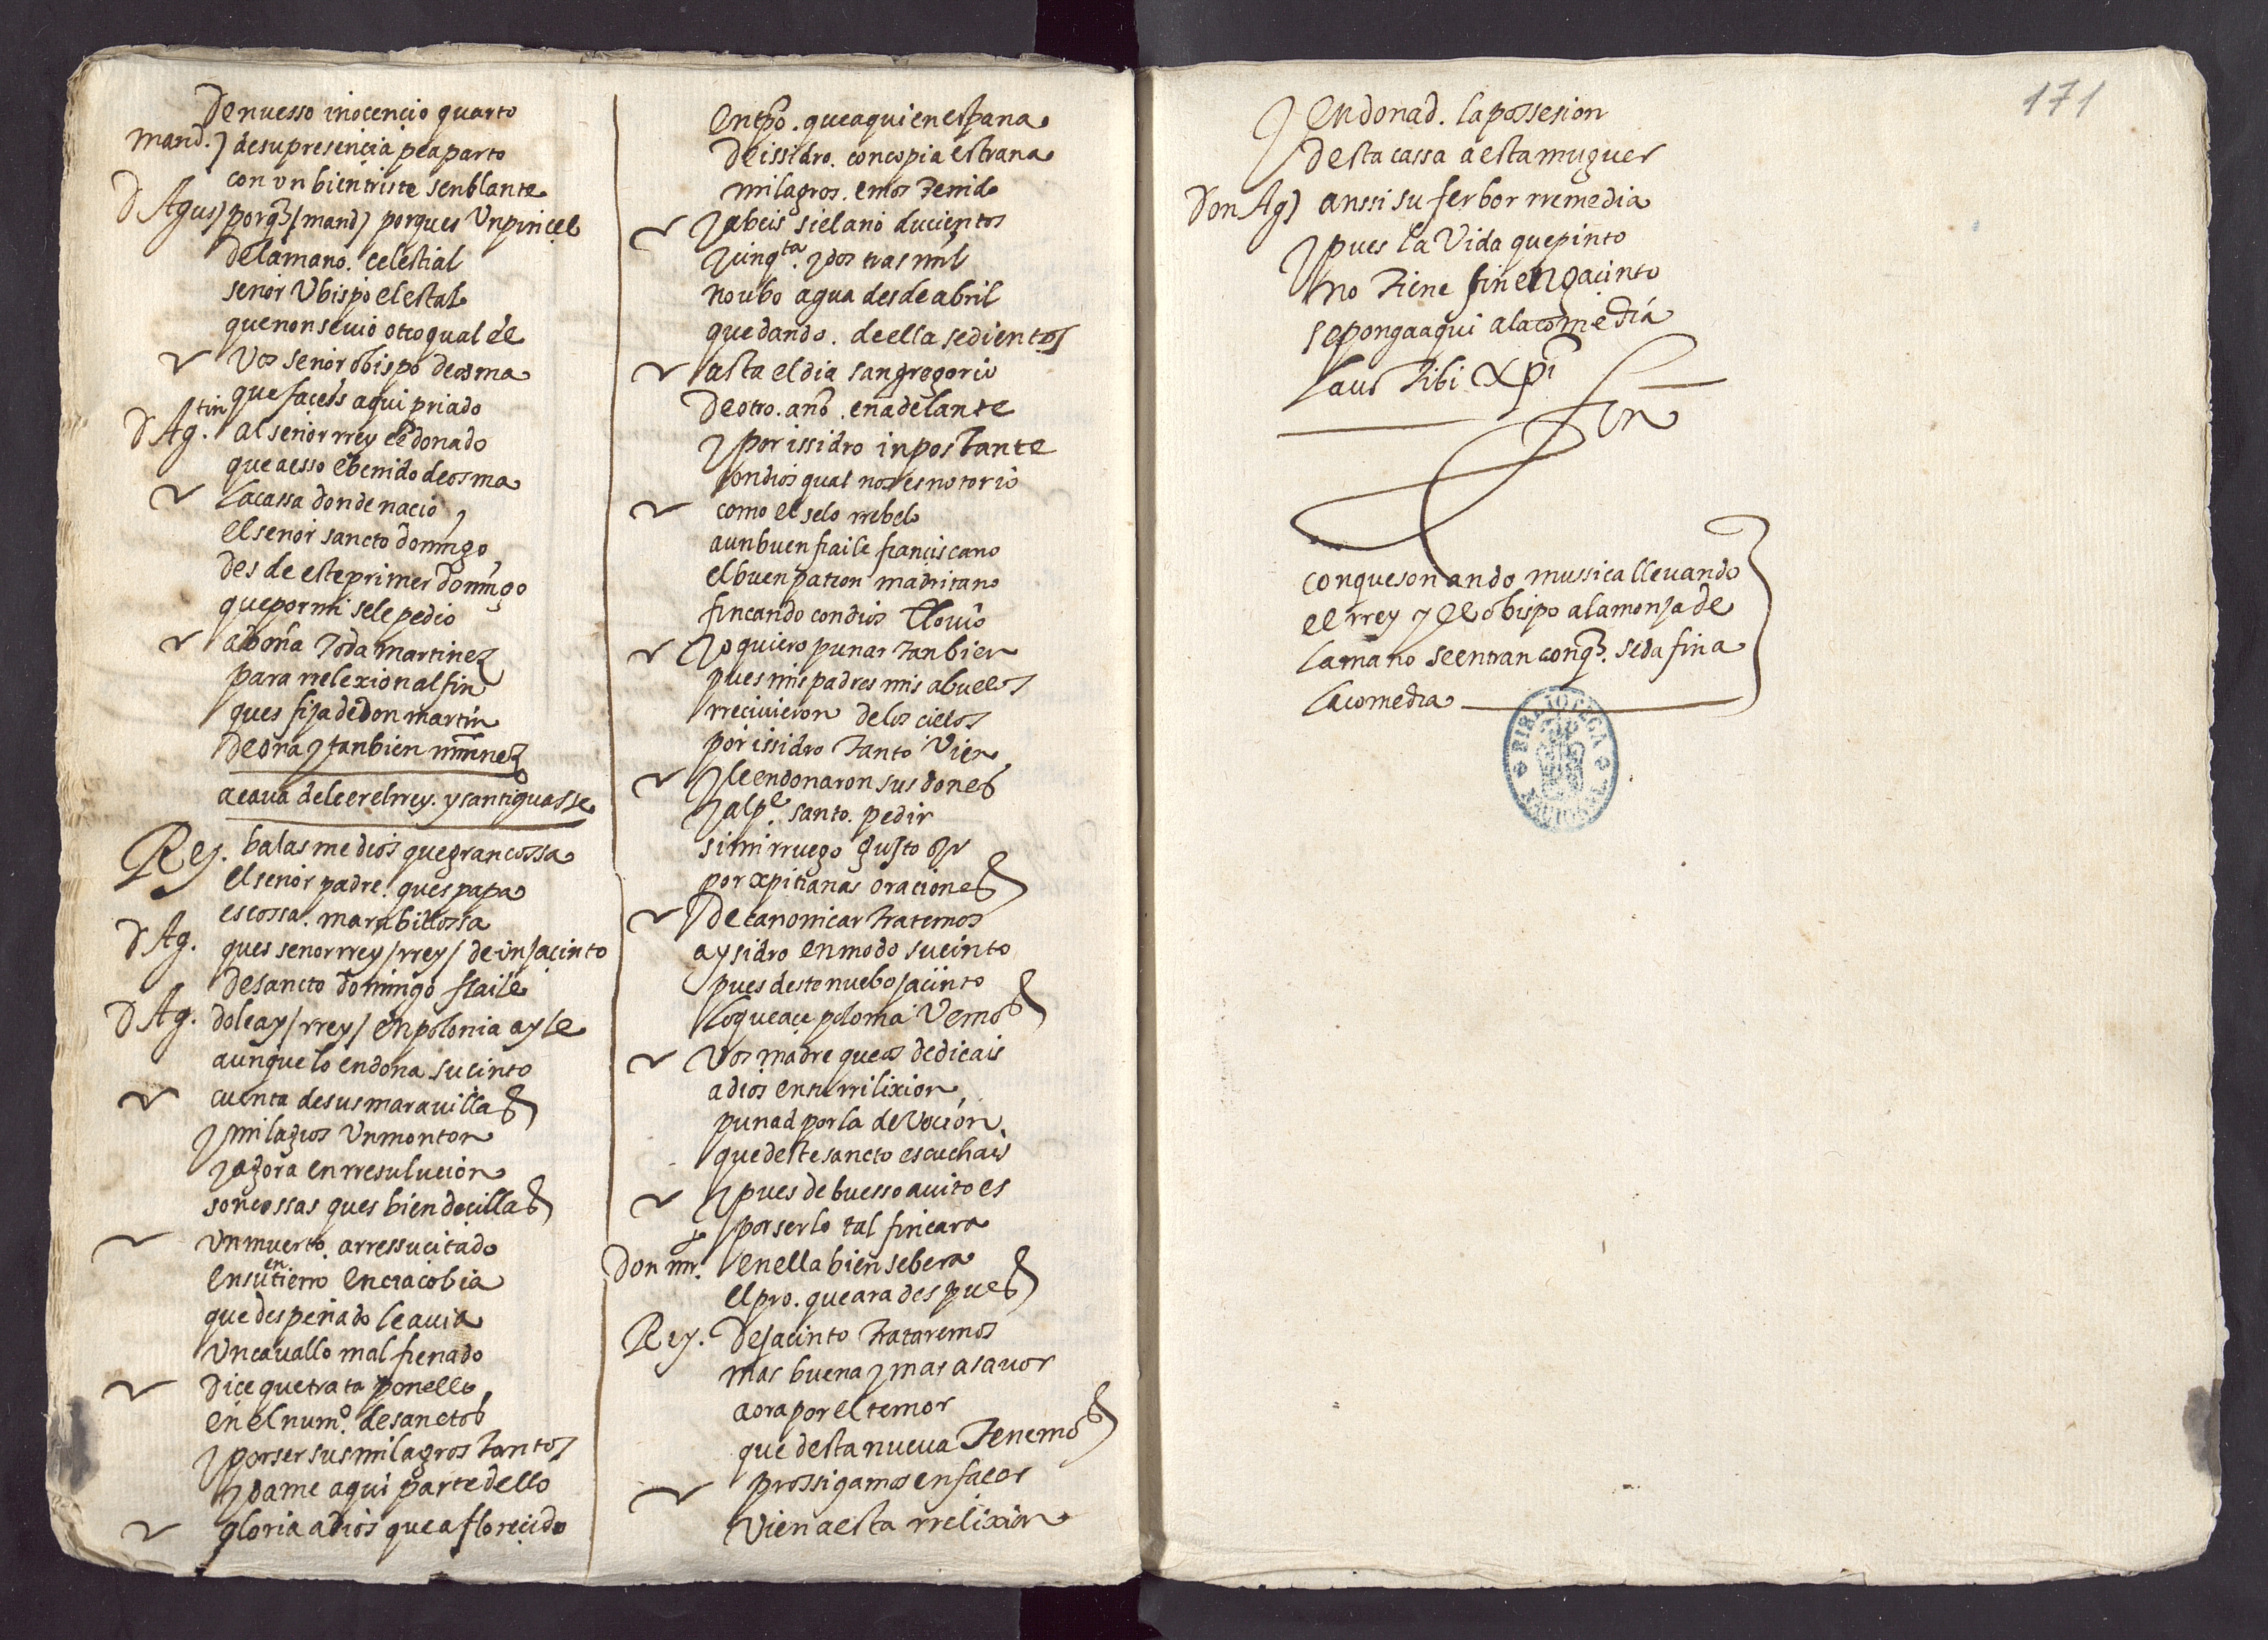 De nuesso inocencio quarto
mand.) de su presencia peaparto
con vn bien triste senblante
D Agus) porq̃ / mand) porques Un pincel
de la mano. celestial
senor Ubispo el estal
que non se uio otro qual el
Vos senor obispo de osma
que faceis aqui priado
D Ag.tin al senor rrey e donado
que a esso e benido de osma
La cassa donde nacio
el senor sancto domingo
des de este primer domingo
que por mi se le pedio
a doña Toda martinez
para rrelexion al fin
ques fija de don martin
de ora y tanbien mrnez
acaua de leer el rrey. y santiguasse
Rey. balasme dios que gran cossa
el senor padre. ques papa
es cossa. marabillossa
D Ag. ques senor rrey / rrey / de un jacinto
de sancto domingo fraile
D Ag. dole ay / rrey / en polonia ayle
aunque lo endona sucinto
cuenta de sus marauillas
y milagros Un monton
y agora en rresulucion
son cossas ques bien decillas
Un muerto. arressucitado
en su entierro en cracobia
que despeñado le auia
Un cauallo mal frenado
Dice que trata ponello
en el numo. de sanctos
y por ser sus milagros Tantos
y dame aqui parte dello
gloria a dios que a florecido
En tpõ. que aqui en espana
de issidro. con copia estrana
milagros. emos Tenido
y abeis si el ano ducientos
y cinqta. y dos tras mil
no ubo agua desde abril
quedando. de ella sedientos
asta el dia san gregorio
de otro. año. en adelante
y por issidro inpostante
con dios qual nos es notorio
como el selo rrebelo
a un buen fraile franciscano
el buen patron madritano
fincando con dios llouio
yo quiero punar tanbien
pues mis padres mis abuelos
rreciuieron de los cielos
por issidro Tanto Vien
y le endonaron sus dones
y al pe. santo. pedir
si mi rruego gusto oyr
por xpitianas oraciones
De canonicar tratemos
a ysidro en modo sucinto
pues deste nuebo jacinto
lo que ace poloma Vemos
Vos madre que os dedicais
a dios en tu rrilixion
punad por la deVocion
que deste sancto escuchais
y pues de buesso auito es
por serlo tal fincara
Don mr. en ella bien se bera
el pro. que ara despues
Rey. De jacinto Trataremos
mas buena y mas a sauor
aora por el temor
que desta nueua Tenemos
prossigamos en facer
Vien a esta rrelixion
171
y endonad. la possesion
desta cassa a esta muguer
Don Ag) anssi su ferbor rremedia
y pues la Vida que pinto
no Tiene fin en jacinto
se ponga aqui a la comedia
Laus Tibi Xpi
Fin
con que sonando mussica lleuando
el rrey y el obispo a la monja de
la mano se entran conq̃. se da fin a
la comedia
BIBLIOTECA NACIONAL